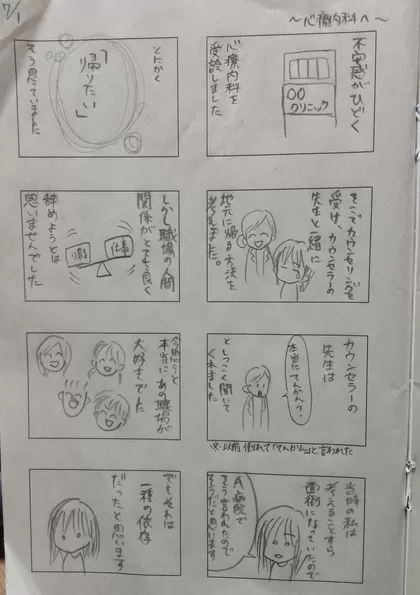 7/1
〜心療内科へ〜
不安感がひどく
○○
クリニック
心療内科を
受診しました
そこでカウンセリングを
受け、カウンセラーの
先生と一緒に
地元に帰る方法を
考えました。
カウンセラーの
先生は
本当にてんかん?
としつこく聞いて
くれました
※以前倒れて「てんかん」と言われた
当時の私は
考えることすら
面倒になっていたので
A病院で
そう言われたので
そうだと思います
とにかく
「帰りたい」
そう思っていました
しかし職場の人間
関係がとても良く
仕事
辞めようとは
思いませんでした
今思うと
本当にあの職場が
大好きでした
でもそれは
一種の依存
だったと思います